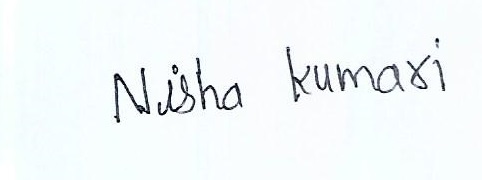 Nisha kumari